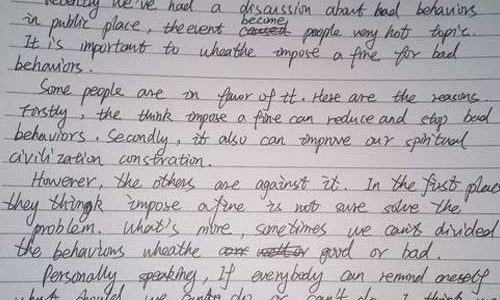 Recently we've had a discussion about bad behaviors
in public place, the event become people very hot topic.
It is important to wheathe impose a fine for bad
behaviors.
Some people are in favor of it. Here are the reasons.
Forstly, the think impose a fine can reduce and stop bad
behaviors. Secondly, it also can improve our spiritual
civilization constration.
However, the others are against it. In the first place
they thingk impose a fine is not sure solve the
problem. What's more, sometimes we can't divided
the behaviors wheathe good or bad.
Personally speaking, If everybody can remind oneself
what should we do or can't do